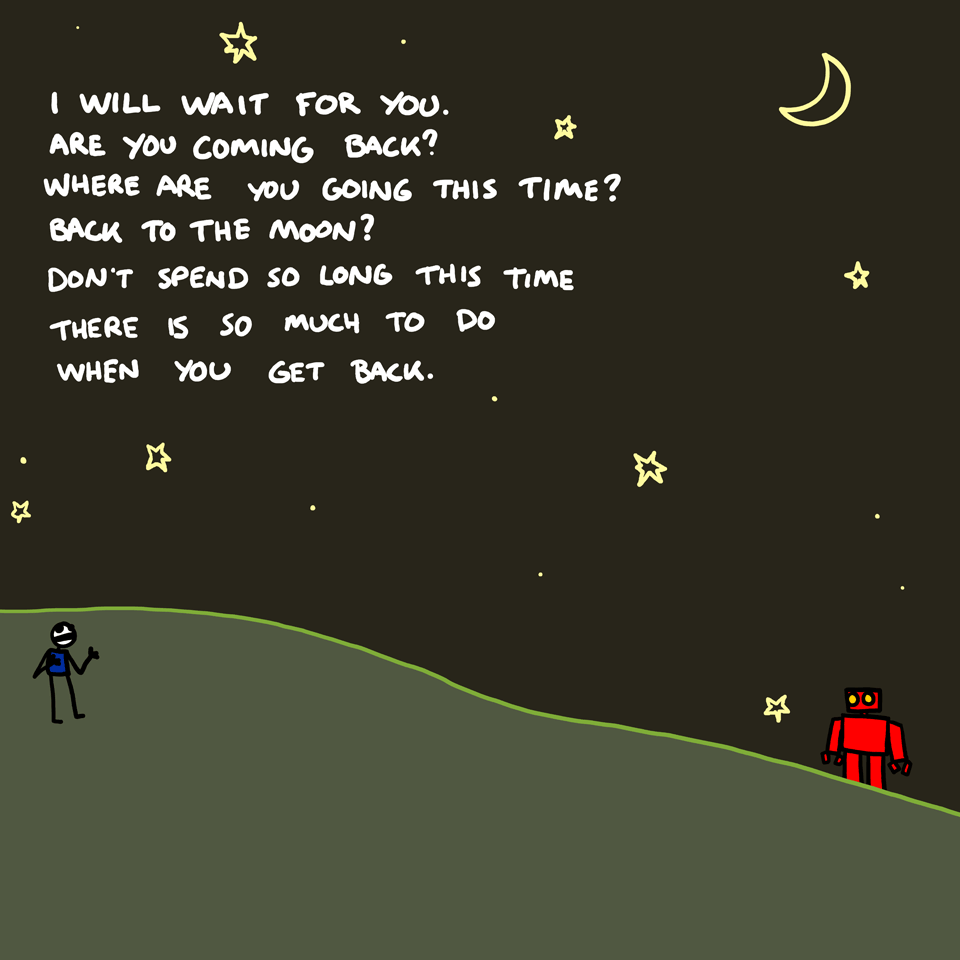 I WILL WAIT FOR YOU.
ARE YOU COMING BACK?
WHERE ARE YOU GOING THIS TIME?
BACK TO THE MOON?
DON'T SPEND SO LONG THIS TIME
THERE IS SO MUCH TO DO
WHEN YOU GET BACK.